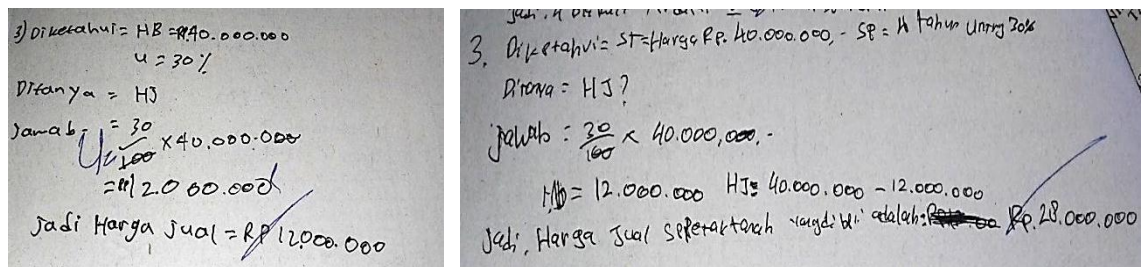 3) Diketahui = HB = Rp40.000.000
u = 30%
Ditanya = HJ
Jawab = 30/100 × 40.000.000
= Rp12.000.000
Jadi Harga Jual = Rp 12000.000
3. Diketahui = ST = Harga Rp. 40.000.000,- SP = 4 tahun Untng 30%
Ditanya = HJ?
Jawab = 30/100 × 40.000,000,-
Hb = 12.000.000 HJ = 40.000.000 - 12.000.000
Jadi, Harga Jual sepetak tanah yang di beli adalah = Rp. 28.000.000